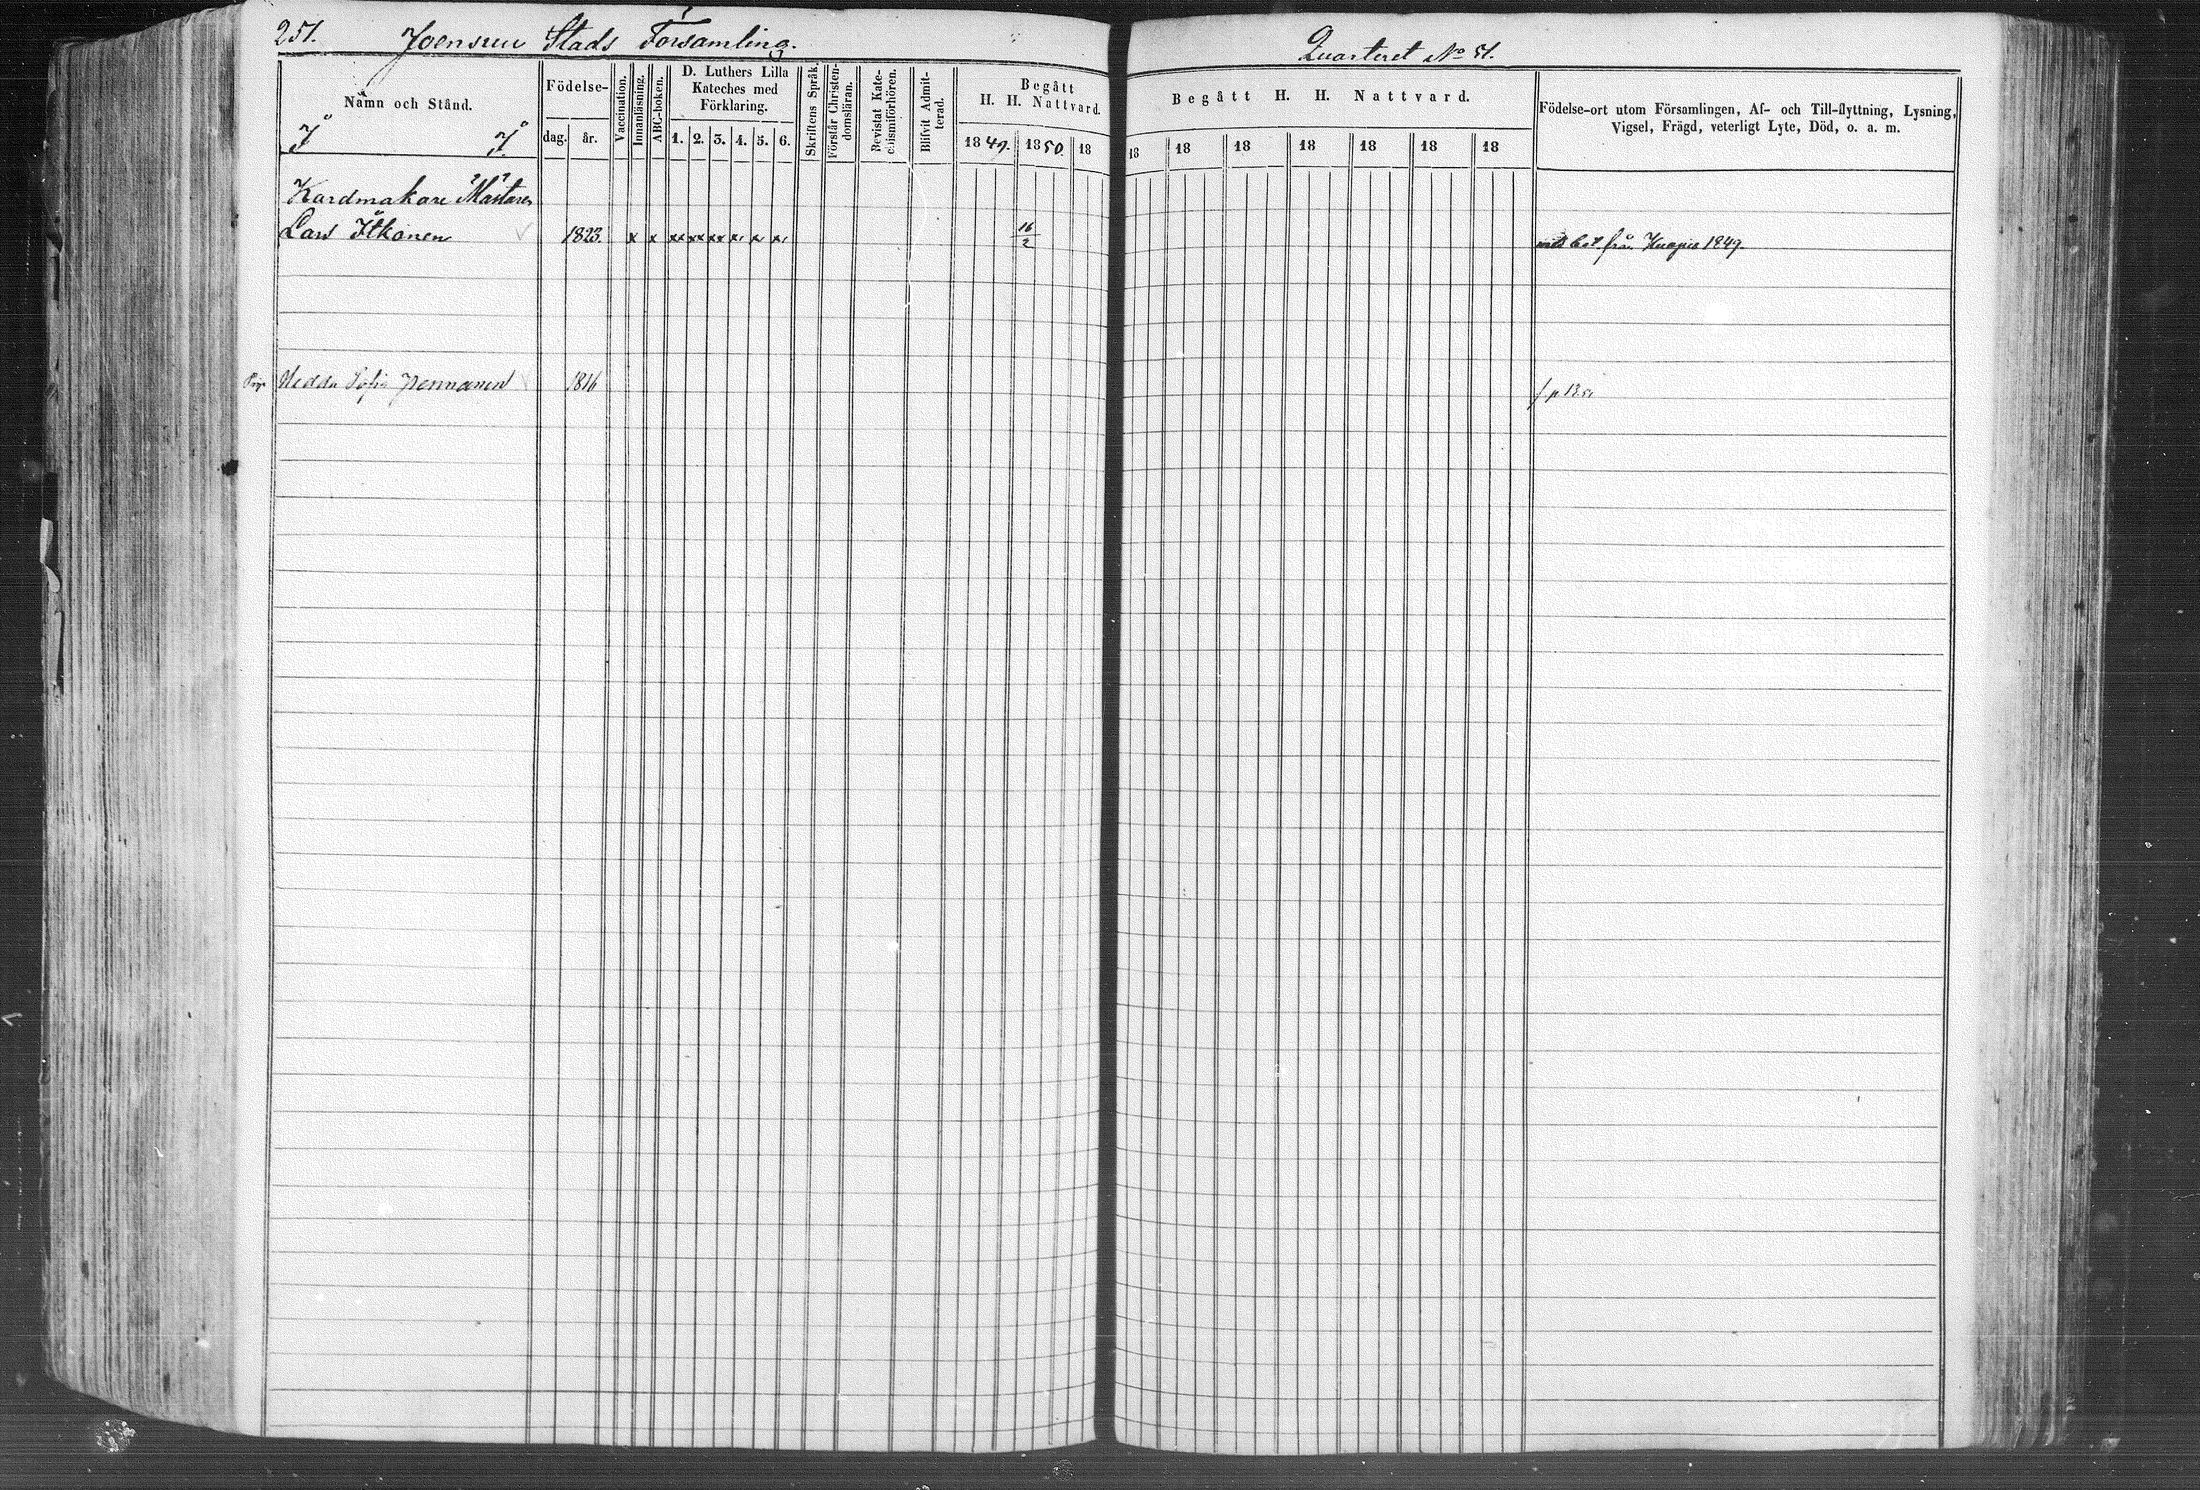 251. Joensuu Stads Församling.
Quarteret No 51.
Namn och Stånd.
Födelse-
dag. år.
Vaccination.
Innanläsning.
ABC-boken.
D. Luthers Lilla
Kateches med
Förklaring.
1. 2. 3. 4. 5. 6.
Skriftens Språk.
Förstår Christen-
domsläran.
Bevistat Kate-
chismiförhören.
Blifvit Admit-
terad.
Begått
H. H. Nattvard.
1849. 1850. 18
Begått H. H. Nattvard.
18 18 18 18 18 18 18
Födelse-ort utom Församlingen, Af- och Till-flyttning, Lysning,
Vigsel, Frägd, veterligt Lyte, Död, o. a. m.
Kardmakare Mästaren
Lars Itkonen 1823. x x xx xx xx x. x x. 16/2 bet. från Kuopio 1849.
Pig. Hedda Sofia Pennanen 1816 f p 13